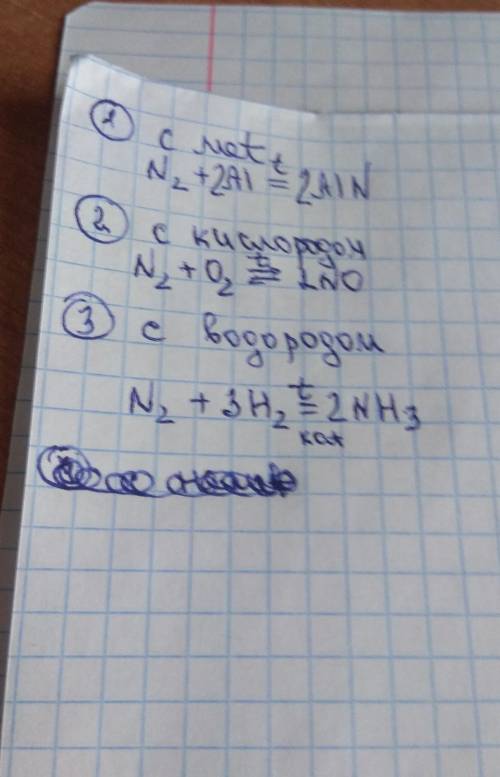 ① с мет
N₂ + 2Al =ᵗ 2AlN
② с кислородом
N₂ + O₂ ⇄ᵗ 2NO
③ с водородом
N₂ + 3H₂ =ᵗ 2NH₃
кат